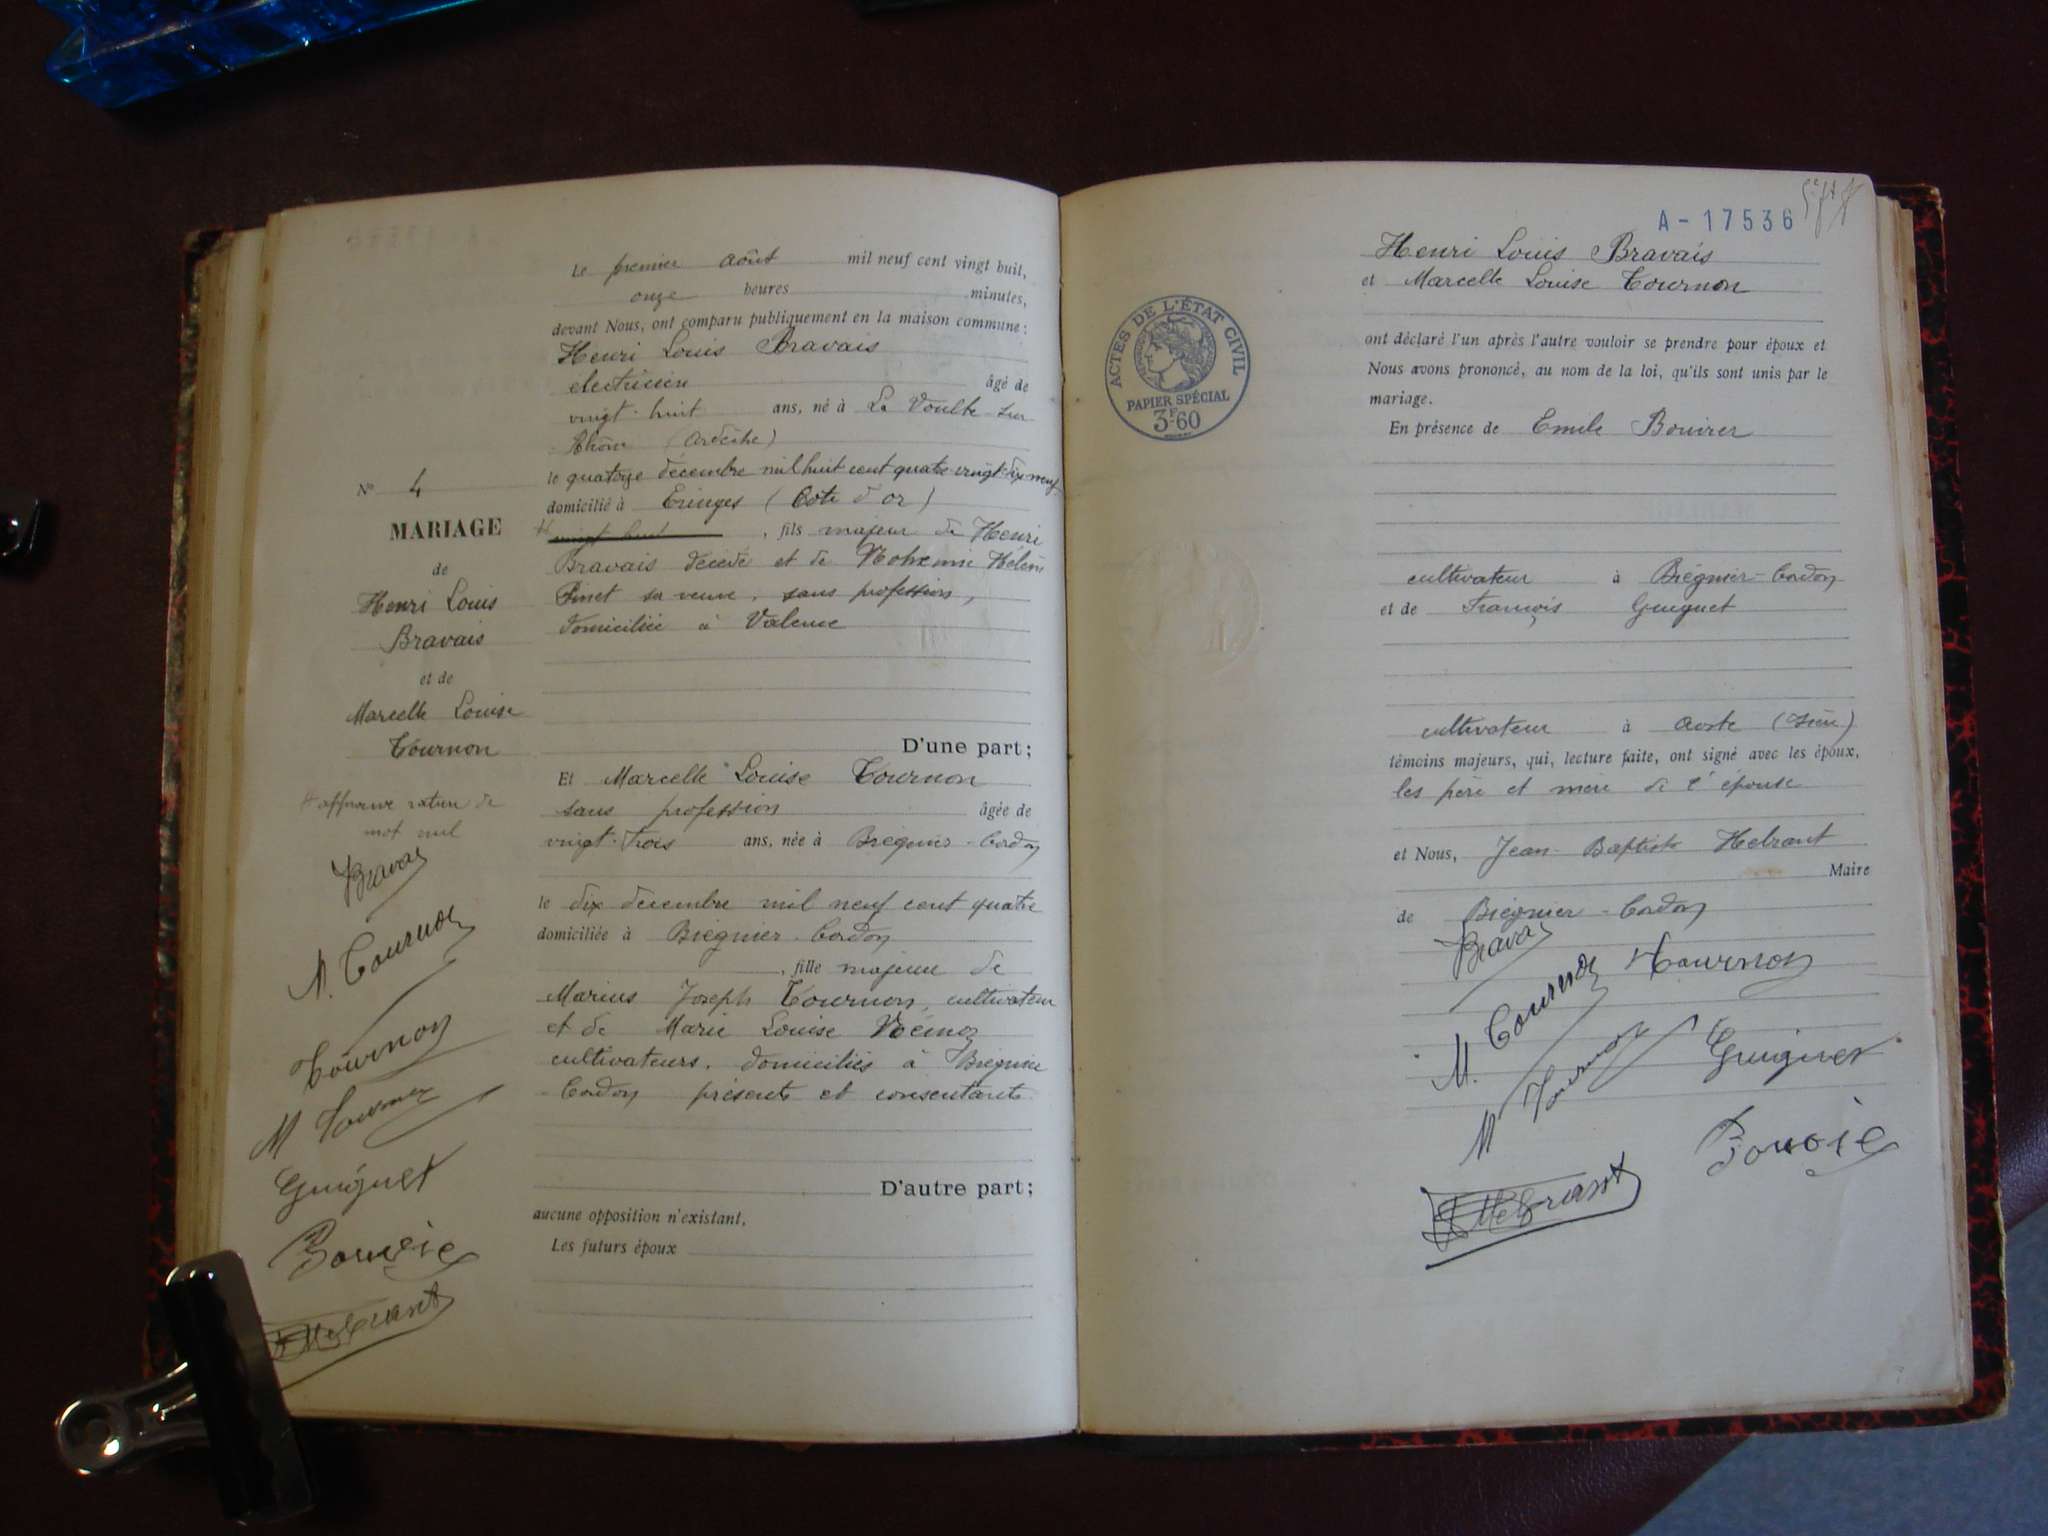 Le premier août mil neuf cent vingt huit,
onze heures minutes,
devant Nous, ont comparu publiquement en la maison commune :
Henri Louis Bravais
électricien âgé de
vingt-huit ans, né à La Voulte sur
Rhône (Ardèche)
le quatorze décembre mil huit cent quatre-vingt-dix-neuf
domicilié à Eringes (Cote d'or)
vingt huit, fils majeur de Henri
Bravais décédé et de Hélène
Pinet sa veuve, sans profession,
domiciliée à Valence
D'une part ;
Et Marcelle Louise Tournon
sans profession âgée de
vingt-trois ans, née à Brégnier-Cordon
le dix décembre mil neuf cent quatre
domiciliée à Brégnier-Cordon
, fille majeure de
Marius Joseph Tournon, cultivateur
et de Marie Louise
cultivateurs, domiciliés à Brégnier
-Cordon présents et consentants
D'autre part ;
aucune opposition n'existant.
Les futurs époux
N° 4
MARIAGE
de
Henri Louis
Bravais
et de
Marcelle Louise
Tournon
mot nul
Bravais
M. Tournon
Tournon
M Tournon
Guiguet
A-17536
Henri Louis Bravais
et Marcelle Louise Tournon
ACTES DE L'ÉTAT CIVIL
PAPIER SPÉCIAL
3F60
ont déclaré l'un après l'autre vouloir se prendre pour époux et
Nous avons prononcé, au nom de la loi, qu'ils sont unis par le
mariage.
En présence de Emile Bouvier
cultivateur à Brégnier-Cordon
et de François Guiguet
cultivateur à Aoste (Isère)
témoins majeurs, qui, lecture faite, ont signé avec les époux,
les père et mère de l'épouse
et Nous, Jean-Baptiste
Maire
de Brégnier-Cordon
Bravais
M. Tournon Tournon
M Tournon Guiguet